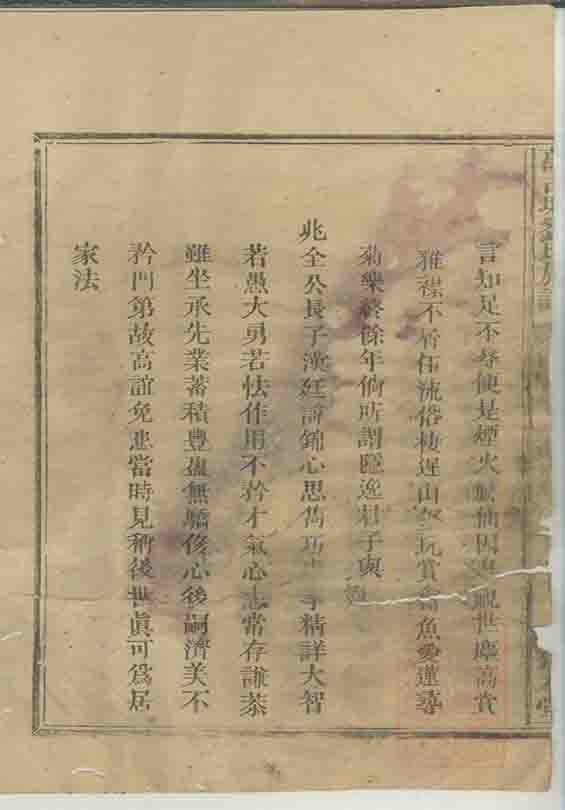 言知足不辱便是煙火神仙因冷觀世塵高賞
雅襟不屑伍流俗棲遲山翫賞禽魚愛蓮尋
菊樂終餘年倘所謂隱逸君子與
兆全公長子漢廷諭錦心思雋巧字精詳大智
若愚大勇若怯作用不矜才氣心志常存謙恭
雖坐承先業蓄積豐盈無驕侈心後嗣濟美不
矜門第故高誼免患當時見稱後世眞可爲居
家法